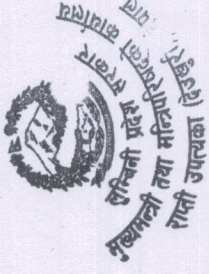 लुम्बिनी प्रदेश सरकार
मुख्यमन्त्री तथा मन्त्रिपरिषद्को कार्यालय
राप्ती उपत्यका (देउखुरी)